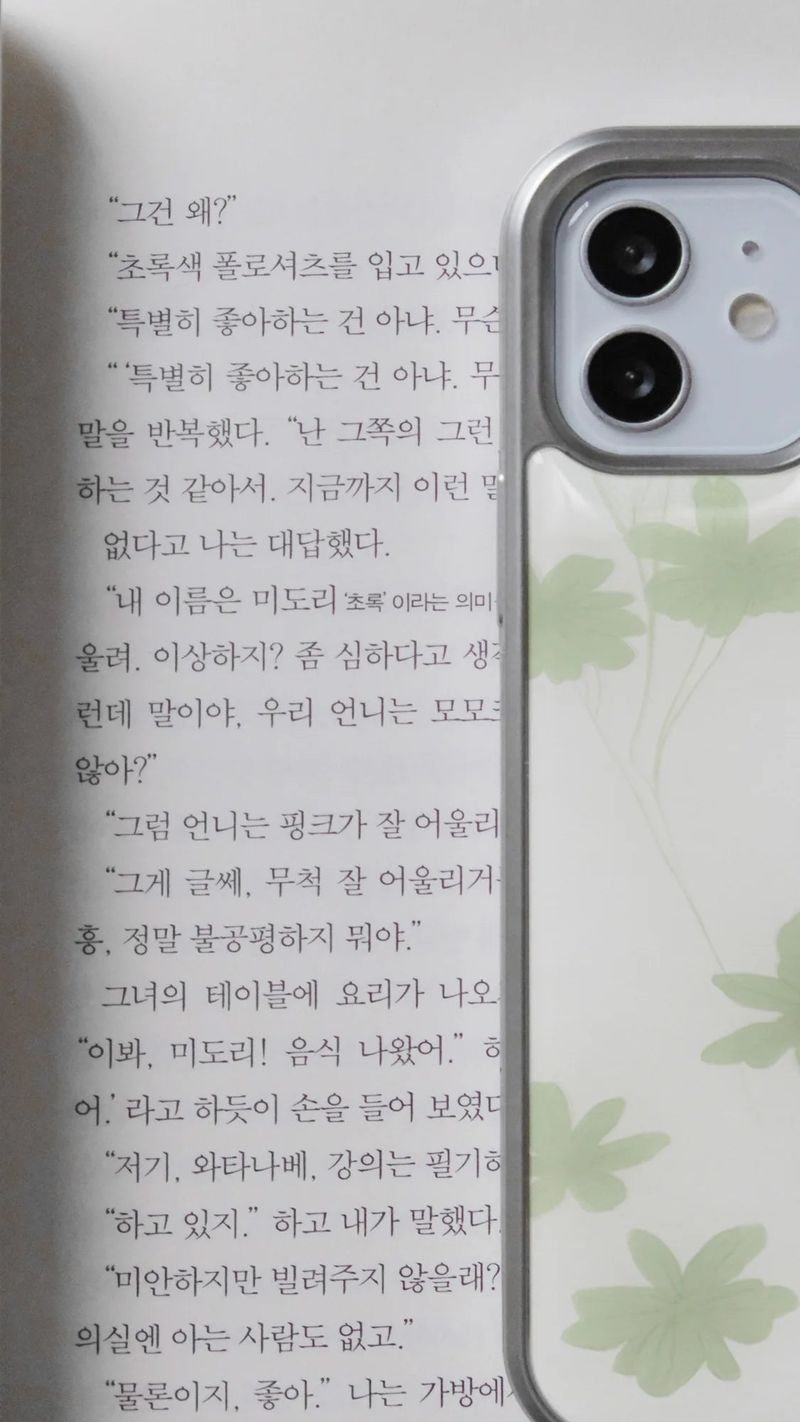 “그건 왜?”
“초록색 폴로셔츠를 입고
“특별히 좋아하는 건 아냐.
“ ‘특별히 좋아하는 건 아냐.
말을 반복했다. “난 그쪽의 그런
하는 것 같아서. 지금까지 이런
없다고 나는 대답했다.
“내 이름은 미도리 ‘초록’ 이라는
울려. 이상하지? 좀 심하다고
런데 말이야, 우리 언니는
않아?”
“그럼 언니는 핑크가 잘
“그게 글쎄, 무척 잘
흥, 정말 불공평하지 뭐야.”
그녀의 테이블에 요리가
“이봐, 미도리! 음식 나왔어.”
어.’ 라고 하듯이 손을 들어
“저기, 와타나베, 강의는
“하고 있지.” 하고 내가
“미안하지만 빌려주지 않을래?
의실엔 아는 사람도 없고.”
“물론이지, 좋아.” 나는